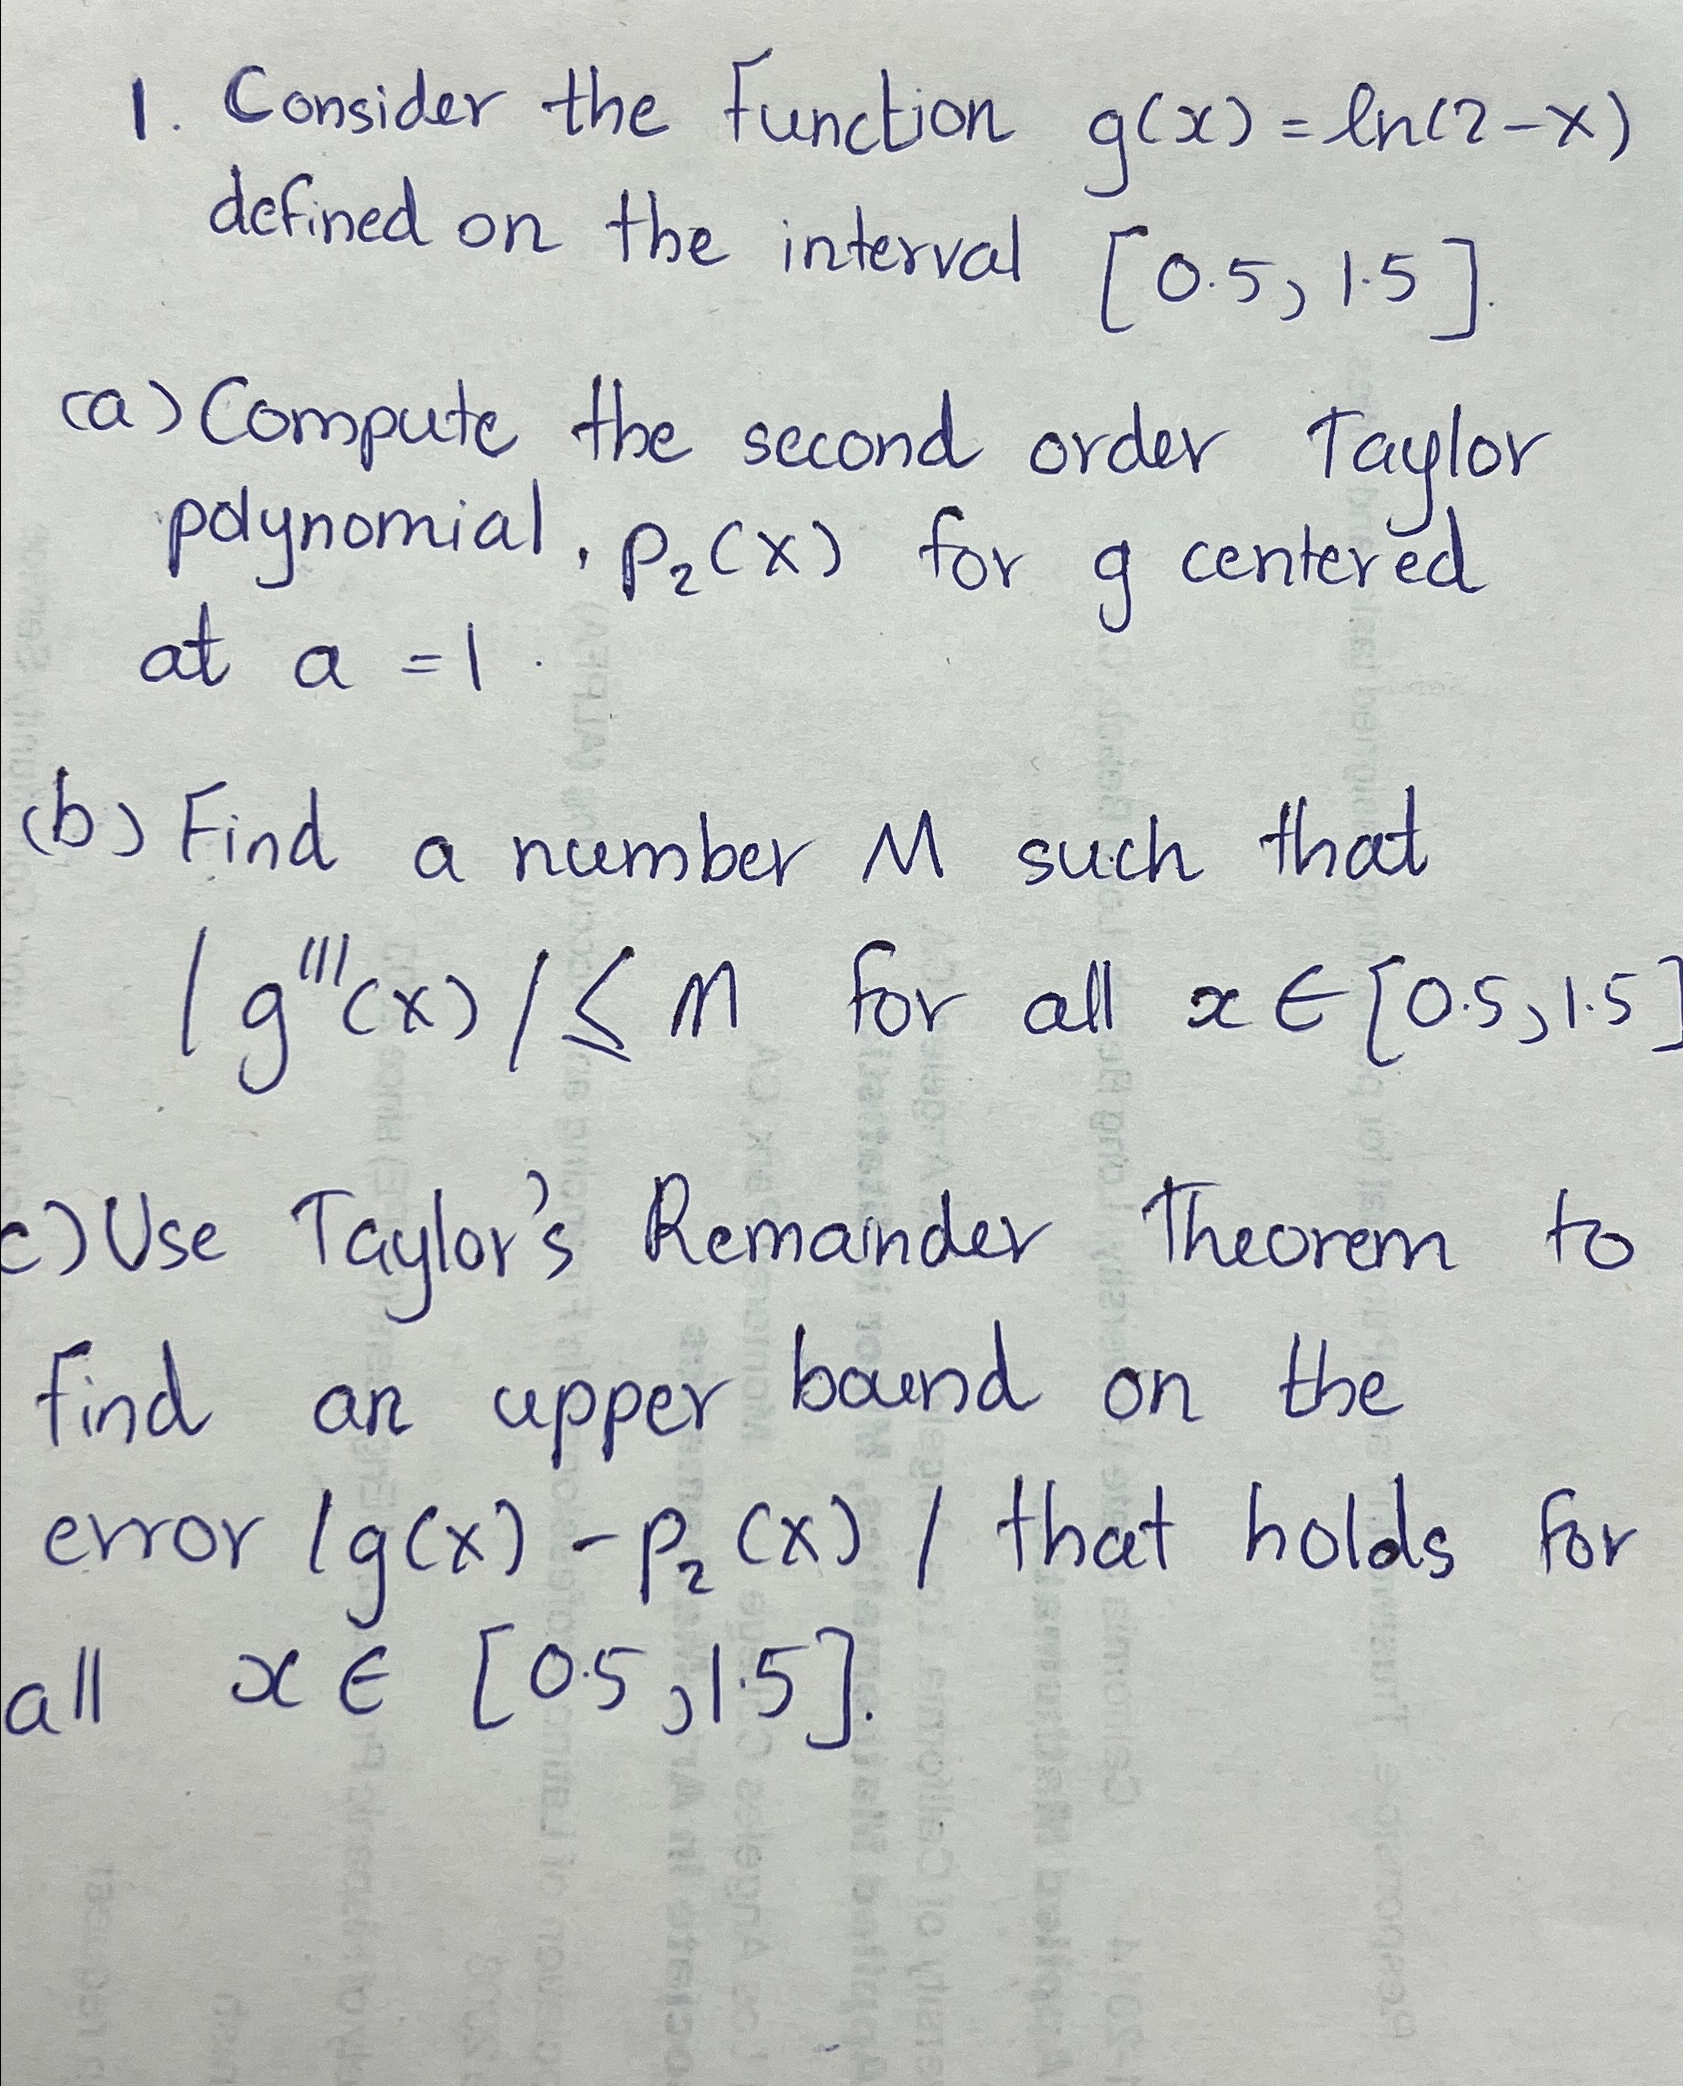 1. Consider the function g(x) = ln(2-x)
defined on the interval [0.5, 1.5].
(a) Compute the second order Taylor
polynomial, p₂(x) for g centered
at a = 1.
(b) Find a number M such that
|g'''(x)| ≤ M for all x ∈ [0.5, 1.5]
c) Use Taylor's Remainder Theorem to
find an upper bound on the
error |g(x) - p₂(x)| that holds for
all x ∈ [0.5, 1.5].